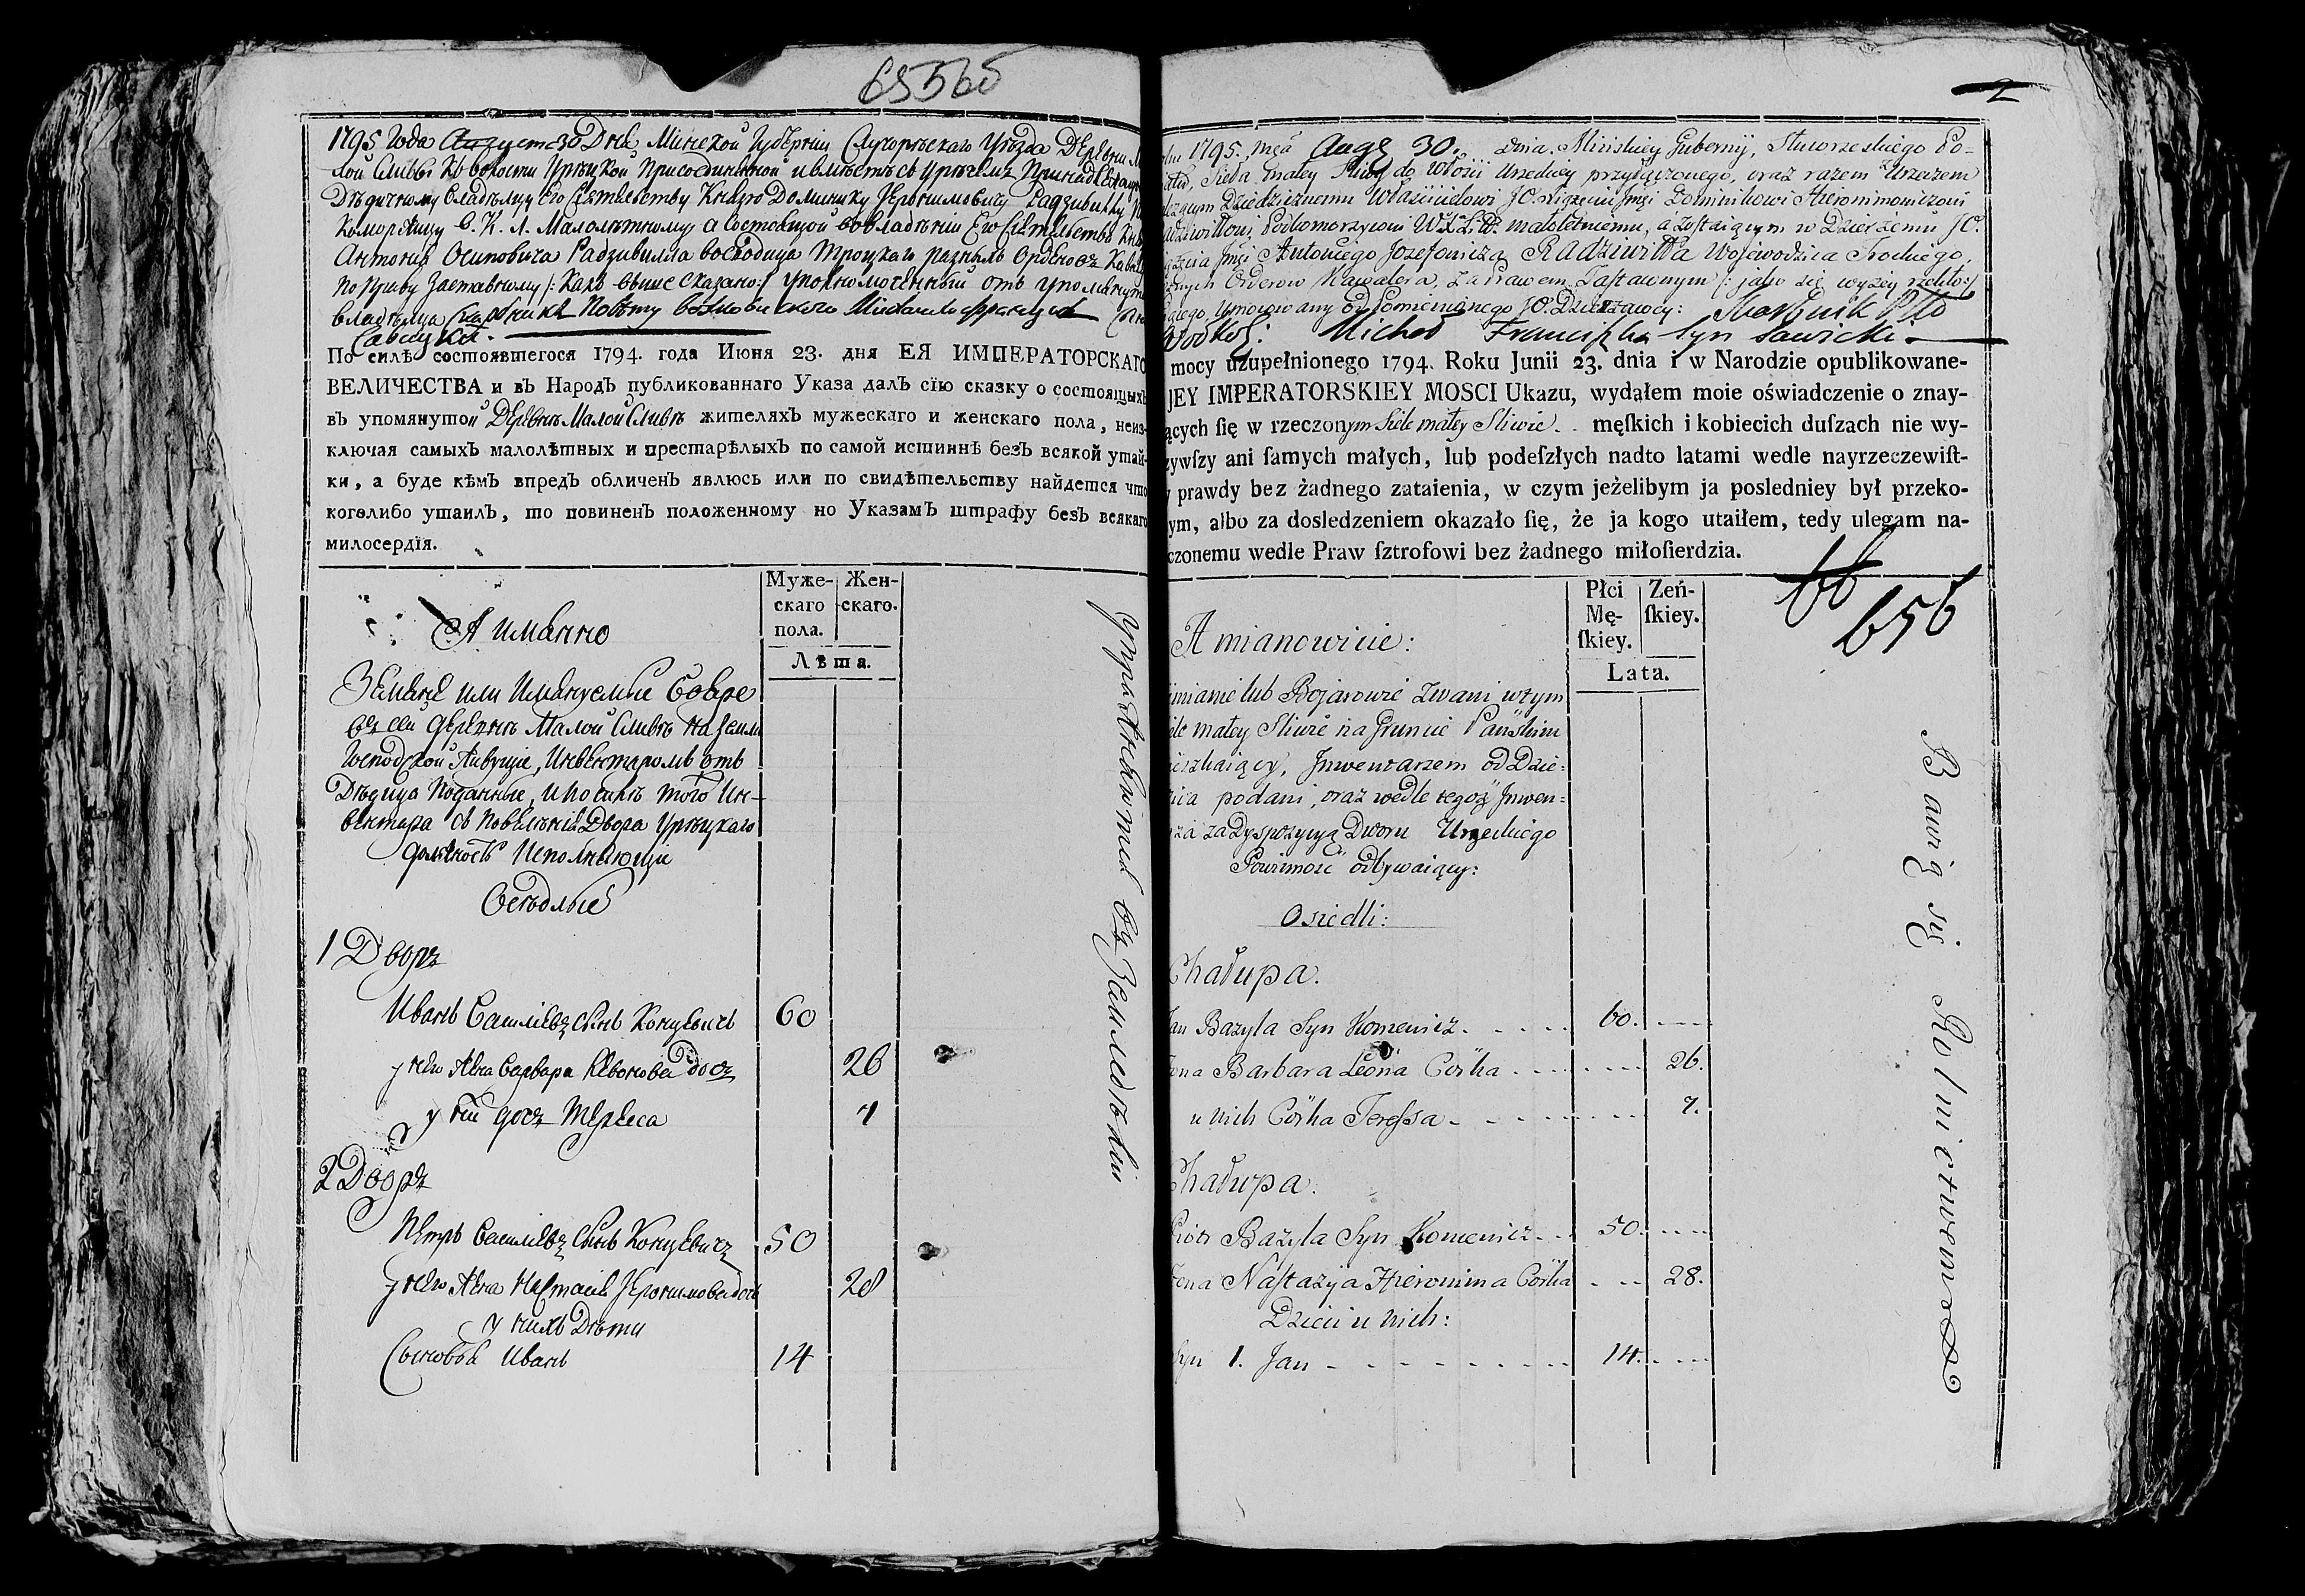 65560
1795 Года Август 30 Дня Минской Губернии Слуторѣскаго Уѣзда Деревни
лой Сливы къ волости Урѣцкой присоединенной и вместѣ съ Урѣчемъ
Дѣдичному владѣльцу его Сиятельству Князю Доминику Иеронимовичу Радзивиллу
Коморжицу В. К. Л. Малолѣтному, а состоящой во владѣнии Его Сиятельства
Антония Осиповича Радзивилла воеводица Троцкаго разныхъ Орденовъ
по праву заставному /: Какъ выше сказано :/ уполномоченный отъ
владѣльца Скарбникъ Повѣту Михаила Францыска
Савицкий.
По силѣ состоявшегося 1794. года Июня 23. дня ЕЯ ИМПЕРАТОРСКАГО
ВЕЛИЧЕСТВА и въ Народъ публикованнаго Указа далъ сїю сказку о состоящыхъ
въ упомянутой Деревнѣ Малой Сливѣ жителяхъ мужескаго и женскаго пола, неиз-
ключая самыхъ малолѣтных и престарѣлыхъ по самой истиннѣ безъ всякой утай-
ки, а буде кѣмъ впредъ обличенъ явлюсь или по свидѣтельству найдется что
коголибо утаилъ, то повиненъ положенному но Указамъ штрафу безъ всякаго
милосердїя.
Муже- Жен-
скаго скаго.
пола.
Лѣта.
А имянно
Земяне или Имянуемые Бояре
въ сей деревнѣ Малой Сливѣ на земли
Господской живущіе, Инвентаромъ отъ
Дѣдица поданные, и по силѣ того Ин-
вентара съ повелѣнія Двора Урѣцкаго
должность исполняющіе
Осѣдлые
1 Дворъ
Иванъ Василіевъ сынъ Концевичъ 60
у него жена Варвара Левонова дочь 26
у ней дочь Тереса 7
2 Дворъ
Петръ Василіевъ сынъ Концевичъ 50
у него жена Настасія Иеронимова дочь 28
у нихъ Дѣти
Сыновья Иванъ 14
упражняются въ Земледѣліи
2
1795. mca Augₑ 30. dnia. Minskiey Gubernij, Słuworzeskiego Po-
Sieła małey Sliwy do Włości Urzeckiey przyłączonego, oraz razem z Urzeczem
Dziedzicznemu Właścicielowi JO. Xiążęciu Jmśi Dominikowi Hieronimowiczowi
Radziwiłłowi, Podkomorzycowi W. X. L. małoletniemu, a zostaiącym w Dzierżeniu JO.
Xiążęcia Jmśi Antoniego Jozefowicza RADZIWIŁŁA Wojewodzica Trockiego,
Orderow Kawalera, za Prawem Zastawnym /: jako się wyżey rzekło :/
Umocowany od Pomienionego JO. Dzierżawcy: Skarbnik Ptto
Wołkoẏ: Michał Franciszka syn Sawicki.
mocy uzupełnionego 1794. Roku Junii 23. dnia i w Narodzie opublikowane-
JEY IMPERATORSKIEY MOSCI Ukazu, wydąłem moie oświadczenie o znay-
ących ſię w rzeczonym Siele małey Sliwie . . męſkich i kobiecich duſzach nie wy-
zywſzy ani ſamych małych, lub podeſzłych nadto latami wedle nayrzeczewiſt-
prawdy bez żadnego zataienia, w czym jeżelibym ja posledniey był przeko-
ym, albo za dosledzeniem okazało ſię, że ja kogo utaiłem, tedy ulegam na-
czonemu wedle Praw ſztrofowi bez żadnego miłoſierdzia.
Płci Zeń-
Mę- ſkiey.
ſkiey.
Lata.
656
A mianowicie:
Zimianie lub Bojarowie zwani w tym
Siele małey Sliwie na Gruncie Pańskim
mieszkaiący, Jnwentarzem od Dzie=
dzica podani, oraz wedle tegoż Jnwen=
tarza za Dyspozycyą Dworu Urzeckiego
Powinność odbywaiący:
Osiedli:
Chałupa.
Jan Bazyla Syn Koncewicz. 60.
Żona Barbara Leona Corka 26.
u Nich Corka Teressa 7.
Chałupa.
Piotr Bazyla Syn Koncewicz 50.
Żona Nastazyja Hieronima Corka 28.
Dzieci u Nich:
Syn 1. Jan 14.
Bawią się Rolnictwem